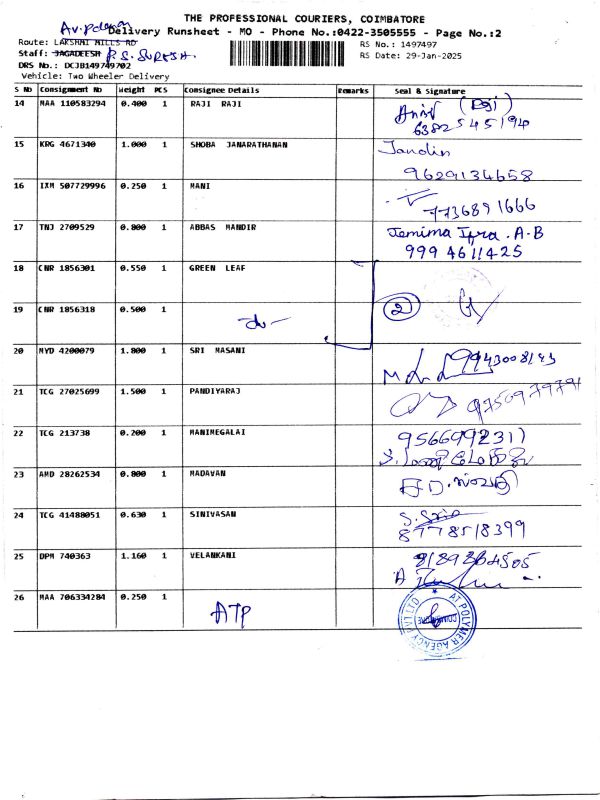 THE PROFESSIONAL COURIERS, COIMBATORE
Delivery Runsheet - MO - Phone No.:0422-3505555 - Page No.:2
Route: LAKSHMI MILLS RD
RS No.: 1497497
Staff: JAGADEESH P.S. SURESH.
RS Date: 29-Jan-2025
DRS No.: DCJB149749702
Vehicle: Two Wheeler Delivery
S No Consignment No Weight PCS Consignee Details Remarks Seal & Signature
14 MAA 110583294 0.400 1 RAJI RAJI
6382545194
15 KRG 4671340 1.000 1 SHOBA JANARATHANAN
9629134658
16 IXM 507729996 0.250 1 MANI
7736891666
17 TNJ 2709529 0.800 1 ABBAS MANDIR Jemima Ifra . A-B
999 4611425
18 CNR 1856301 0.550 1 GREEN LEAF
19 CNR 1856318 0.500 1 -do- 2
20 MYD 4200079 1.800 1 SRI MASANI
21 TCG 27025699 1.500 1 PANDIYARAJ
22 TCG 213738 0.200 1 MANIMEGALAI
9566992317
23 AMD 28262534 0.800 1 MADAVAN
24 TCG 41488051 0.630 1 SINIVASAN
8778518399
25 DPM 740363 1.160 1 VELANKANI
26 MAA 706334284 0.250 1 ATP
AT POLYMER AGENCY PVT LTD
COIMBATORE